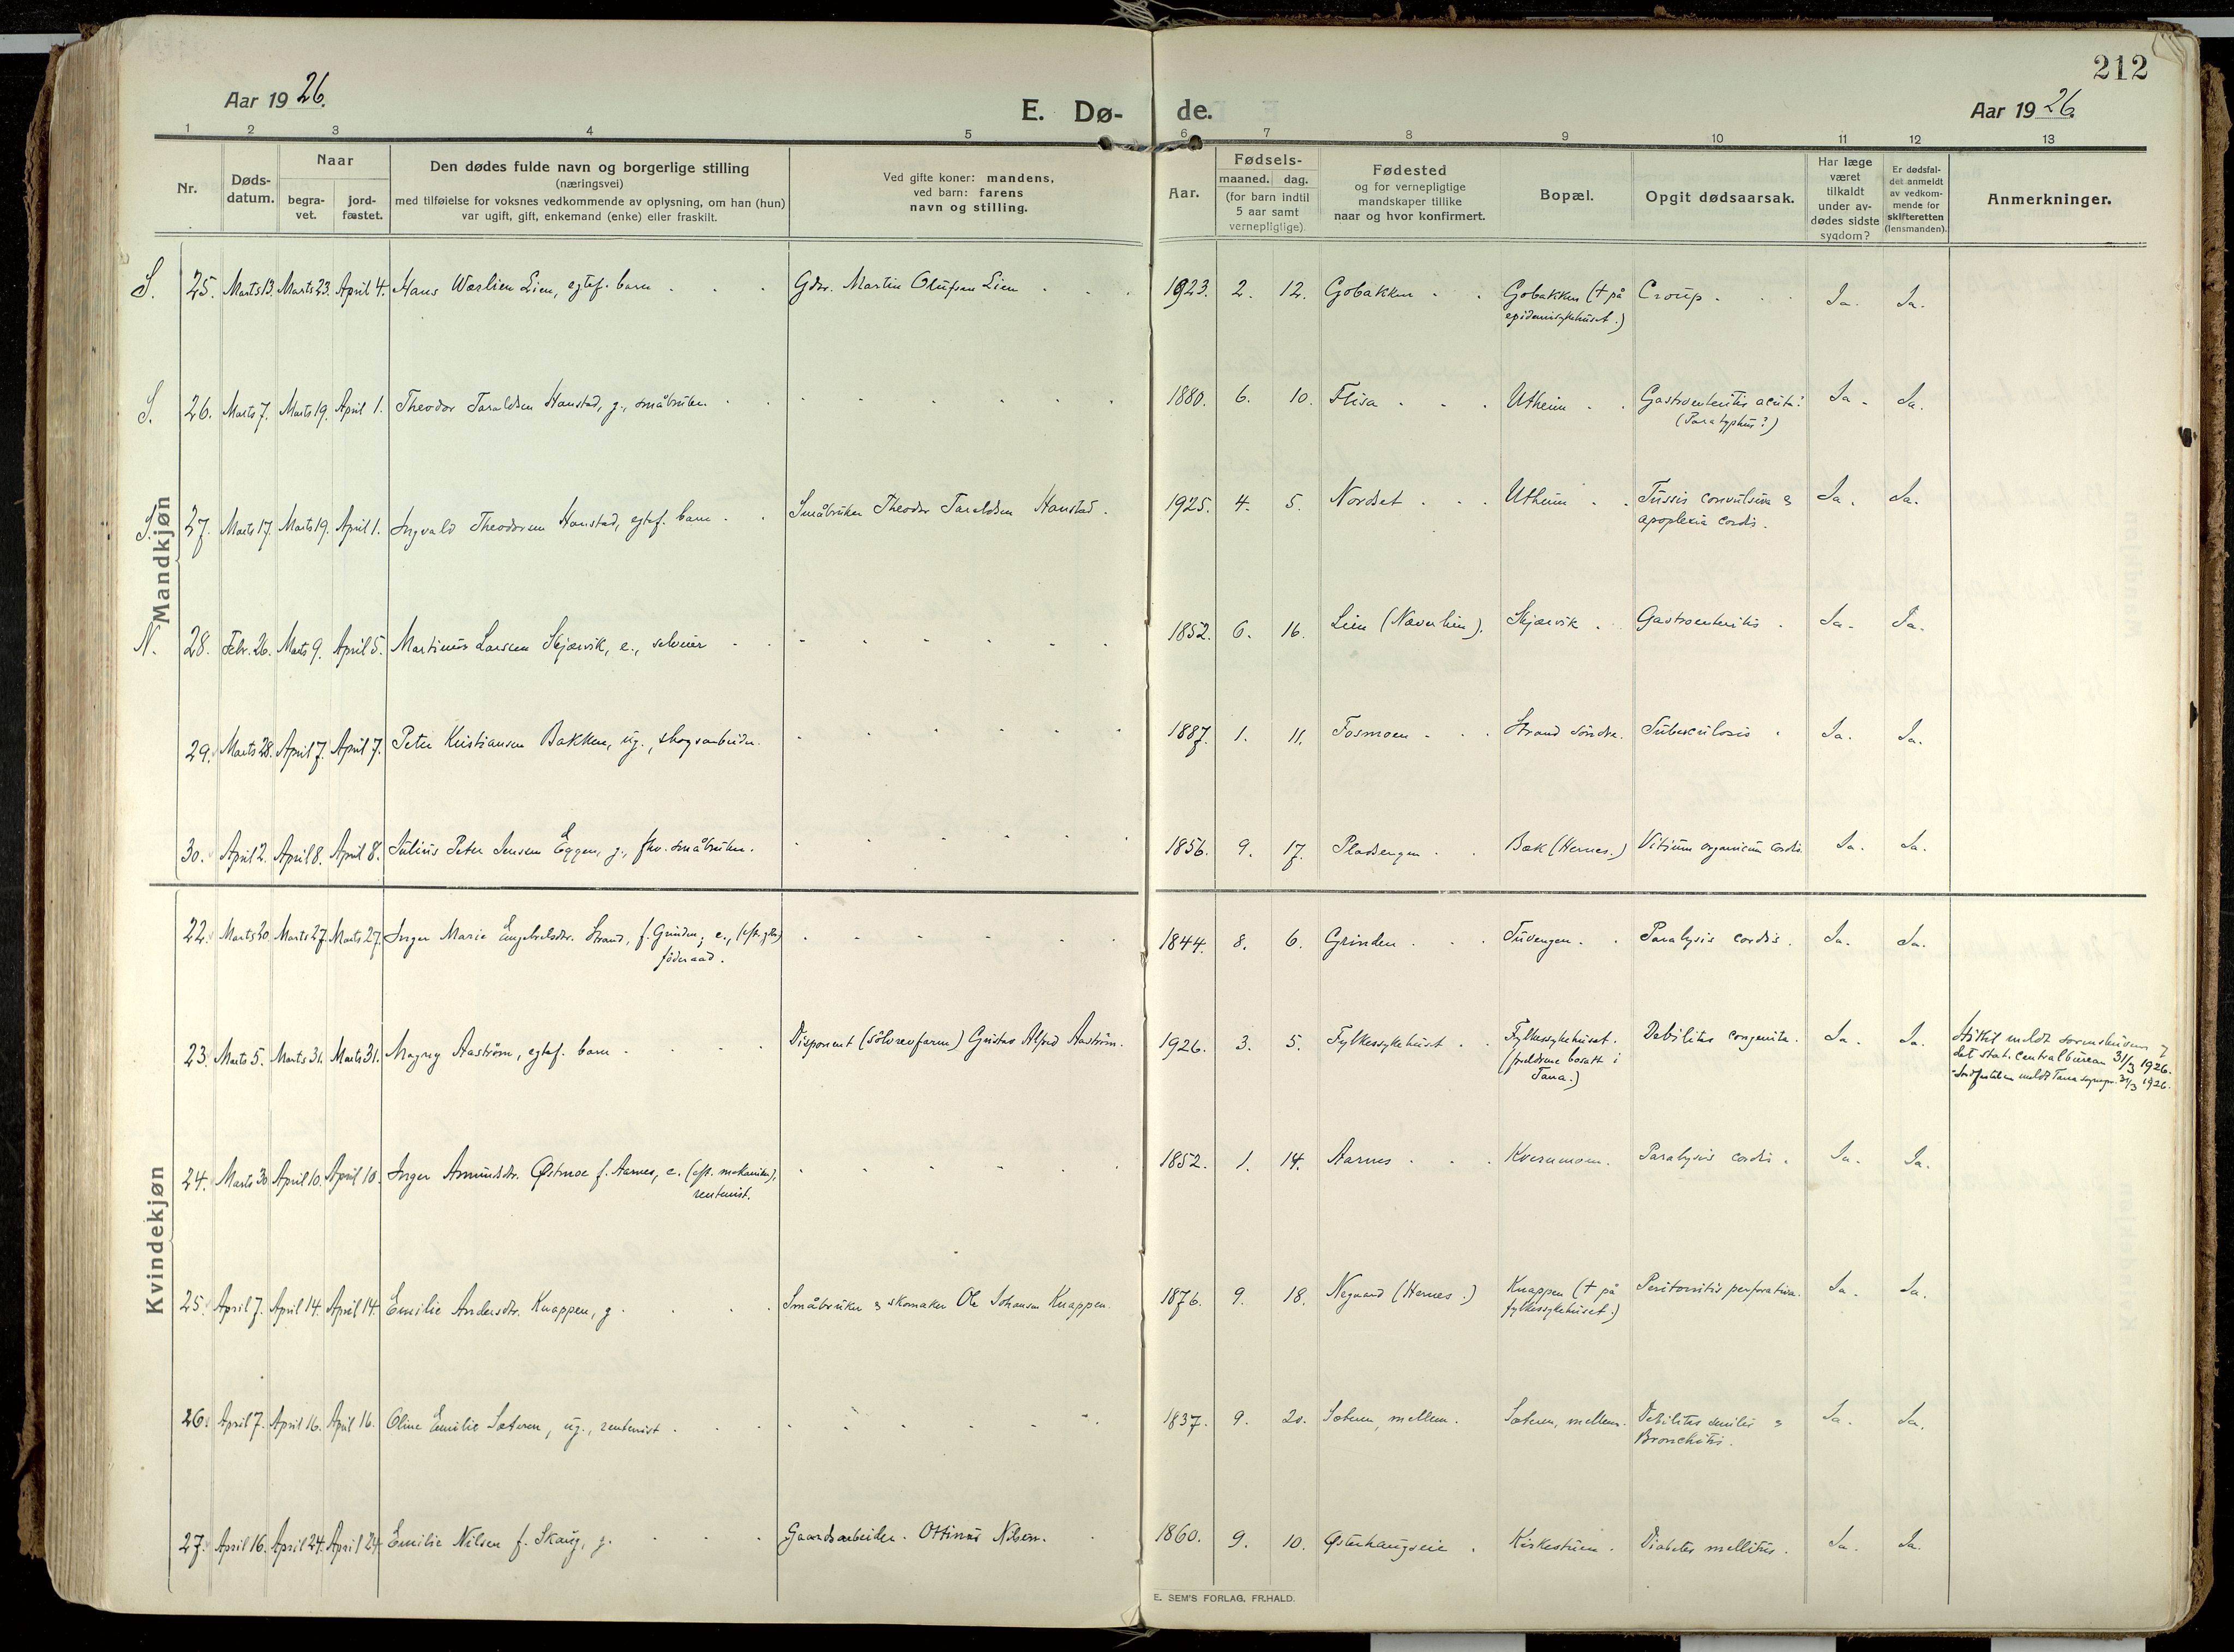 212
Aar 1926.
E. Dø-
de.
Aar 1926.
1 2 3 4 5 6 7 8 9 10 11 12 13
Nr.
Døds-
datum.
Naar
begra-
vet.
jord-
fæstet.
Den dødes fulde navn og borgerlige stilling
(næringsvei)
med tilføielse for voksnes vedkommende av oplysning, om han (hun)
var ugift, gift, enkemand (enke) eller fraskilt.
Ved gifte koner: mandens,
ved barn: farens
navn og stilling.
Aar.
Fødsels-
maaned. dag.
(for barn indtil
5 aar samt
vernepligtige).
Fødested
og for vernepligtige
mandskaper tillike
naar og hvor konfirmert.
Bopæl.
Opgit dødsaarsak.
Har læge
været
tilkaldt
under av-
dødes sidste
sygdom?
Er dødsfal-
det anmeldt
av vedkom-
mende for
skifteretten
(lensmanden).
Anmerkninger.
Mandkjøn
S. 25. Marts 13. Marts 23. April 4. Hans Wærlien Lien, egtef. barn Gdbr. Martin Olufsen Lien 1923. 2. 12. Gobakken Gobakken († på Croup. Ja. Ja.
epidemisykehuset.)
S. 26. Marts 7. Marts 19. April 1. Theodor Taraldsen Hanstad, g., småbruker. 1880. 6. 10. Flisa Utheim Gastroenteritis acuta? Ja. Ja.
(Paratyphus?)
S. 27. Marts 17. Marts 19. April 1. Ingvald Theodorsen Hanstad, egtef. barn Småbruker Theodor Taraldsen Hanstad. 1925. 4. 5. Nordset Utheim Tussis convulsiva & Ja. Ja.
apoplexia cordis.
N. 28. Febr. 26. Marts 9. April 5. Martinus Larsen Skjærvik, e., selveier 1852. 6. 16. Lien (Næverlien). Skjærvik Gastroenteritis. Ja. Ja.
29. Marts 28. April 7. April 7. Peter Kristiansen Bakken, ug., skogsarbeider. 1887. 1. 11. Fosmoen Strand søndre. Tuberculosis. Ja. Ja.
30. April 2. April 8. April 8. Julius Peter Jensen Eggen, g., fhv. småbruker. 1856. 9. 17. Pladsengen Bæk (Hernes.) Vitium organicum cordis. Ja. Ja.
Kvindekjøn
22. Marts 20. Marts 27. Marts 27. Inger Marie Engebretsdtr. Strand, f. Grinden, e., (eft. gbr.) 1844. 8. 6. Grinden Tuvengen. Paralysis cordis. Ja. Ja.
föderaad.
23. Marts 5. Marts 31. Marts 31. Magny Aaström, egtef. barn Disponent (sölvrevfarm) Gustav Alfred Aaström. 1926. 3. 5. Fylkessykehuset. Fylkessykehuset. Debilitas congenita. Ja. Ja.
(foreldrene bosatt i
Tana.)
meldt sorenskriveren &
det stat. centralbureau 31/3 1926.
meldt Tana sognepr. 31/3 1926.
24. Marts 30. April 10. April 10. Inger Amundsdtr. Østmoe f. Aarnes, e. (eft. mekaniker), 1852. 1. 14. Aarnes Kvernmoen. Paralysis cordis. Ja. Ja.
rentenist.
25. April 7. April 14. April 14. Emilie Andersdtr. Knappen, g. Småbruker & skomaker Ole Johansen Knappen. 1876. 9. 18. Nygaard (Hernes.) Knappen († på Peritonitis perforativa. Ja. Ja.
fylkessykehuset.)
26. April 7. April 16. April 16. Oline Emilie Sæteren, ug., rentenist. 1837. 9. 20. Sæteren, mellem. Sæteren, mellem. Debilitas senilis & Ja. Ja.
Bronchitis.
27. April 16. April 24. April 24. Emilie Nilsen f. Skaug, g. Gaardsarbeider Ottinus Nilsen. 1860. 9. 10. Østerhaugseie Kirkestuen. Diabetes mellitus. Ja. Ja.
E. SEM'S FORLAG, FR.HALD.